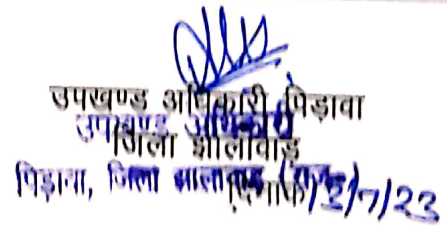 उपखण्ड अधिकारी पिड़ावा
उपखण्ड अधिकारी
जिला झालावाड़
पिड़ावा, जिला झालावाड़ (राज.)
दिनांक 7/23